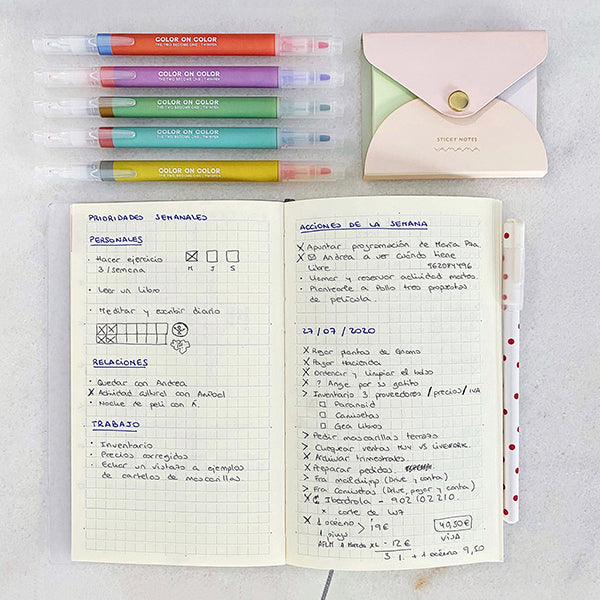 COLOR ON COLOR
THE TWO BECOME ONE : TWINPEN
COLOR ON COLOR
THE TWO BECOME ONE : TWINPEN
COLOR ON COLOR
THE TWO BECOME ONE : TWINPEN
COLOR ON COLOR
THE TWO BECOME ONE : TWINPEN
COLOR ON COLOR
THE TWO BECOME ONE : TWINPEN
STICKY NOTES
PRIORIDADES SEMANALES
PERSONALES
· Hacer ejercicio
3/semana
M J S
· Leer un Libro
· Meditar y escribir diario
RELACIONES
· Quedar con Andrea
X Actividad cultural con Anibal
· Noche de peli con A.
TRABAJO
· Inventario
· Precios corregidos
· Echar un vistazo a ejemplos
de carteles de mascarillas.
ACCIONES DE LA SEMANA
X Apuntar programación de María Pza.
X Andrea a ver cuándo tiene
libre 962084496
· Llamar y reservar actividad martes.
· Plantearle a Pollo tres propuestas
de película.
27/07/2020
X Regar plantas de Gnomo
X Pagar Hacienda
X Ordenar y limpiar el bolso
X ? Ange por su gatito
> Inventario 3 proveedores / precios / IVA
Paranoid
Camisetas
Gea Libros
> Pedir mascarillas terrazo
> Chequear ventas MJV VS LIVEWORK.
X Archivar trimestrales.
X Preparar pedidos.
> Fra (Drive y conta)
> Fra camisetas (Drive, pagar y conta)
X Iberdrola - 902102210.
x corte de luz
X 1 océano > 19€
1
40,50€
VISA
XL - 12€
3 1. + 1 océano 9,50